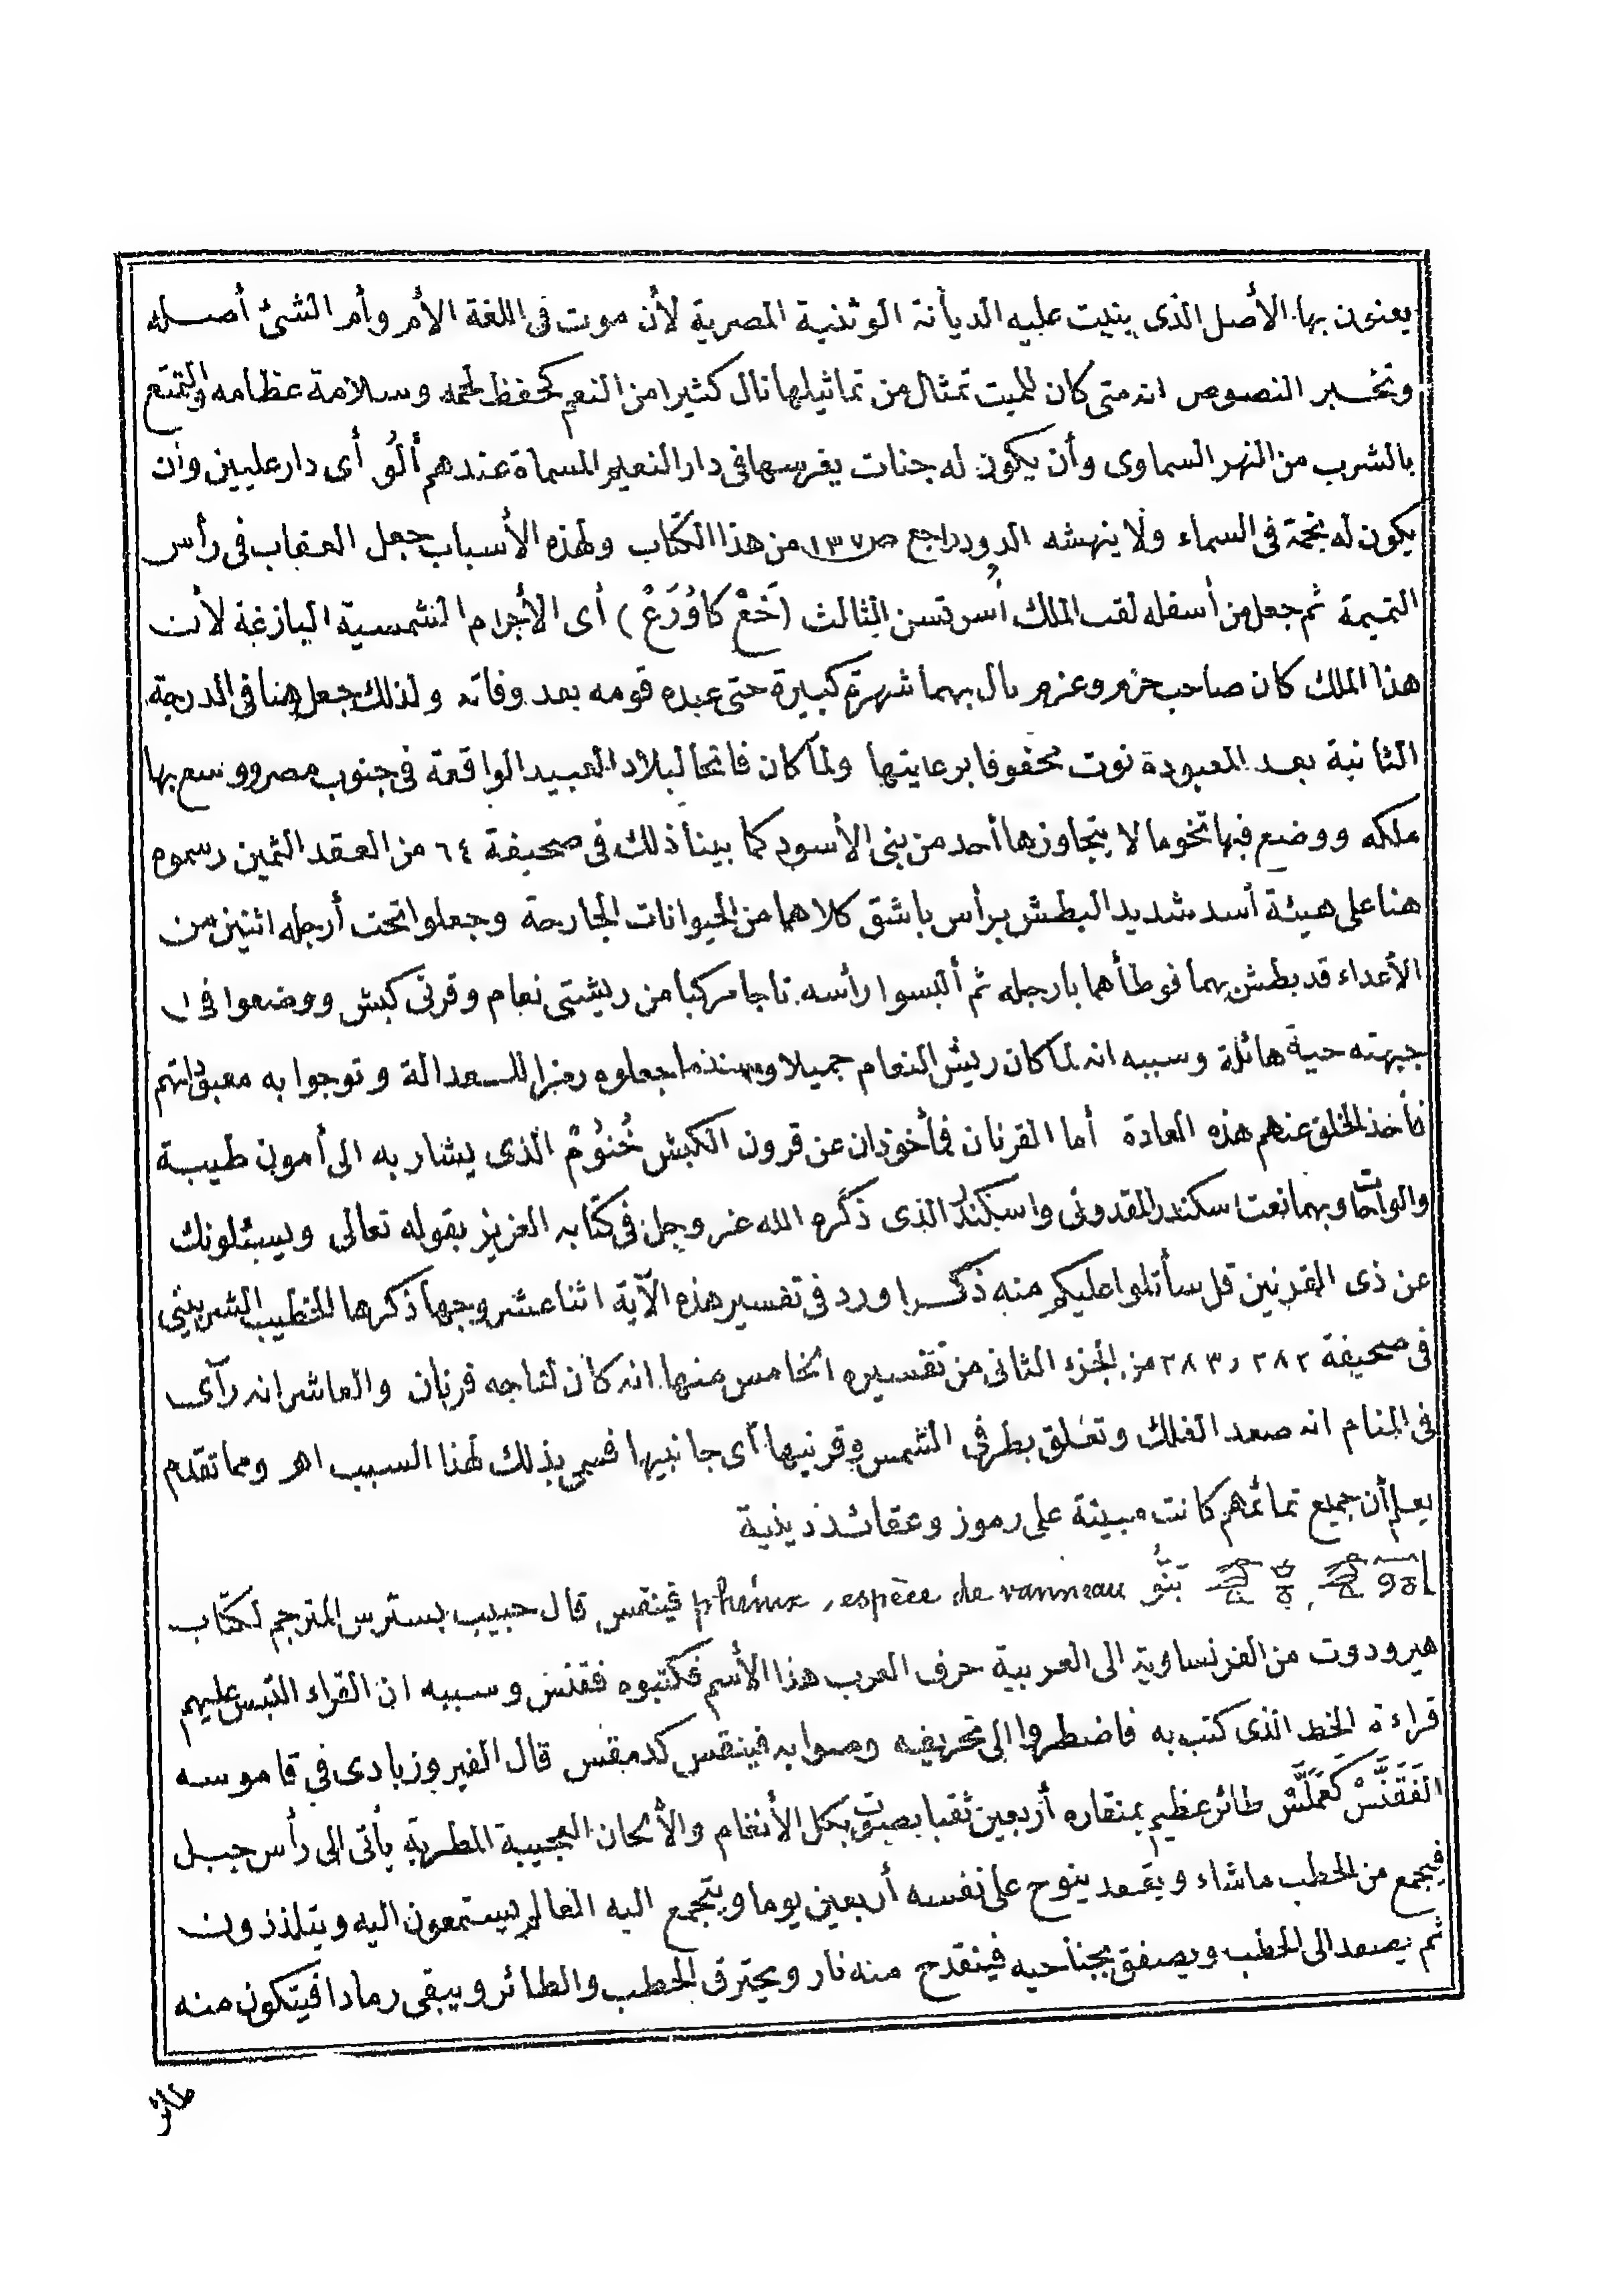 يعنون بها الأصل الذى بنيت عليه الديانة الوثنية المصرية لأن موت فى اللغة الأم وأم الشئ أصله
وتخبر النصوص انه متى كان للميت تمثال من تماثيلها نال كثيرا من النعم كحفظ لحمه وسلامة عظامه والتمتع
بالشرب من النهر السماوى وأن يكون له جنات يغرسها فى دار النعيم المسماة عندهم أَلُو أى دار عليين وأن
يكون له نجمة فى السماء ولا ينهشه الدود راجع ص ١٣٧ من هذا الكتاب ولهذه الأسباب جعل العقاب فى رأس
التميمة ثم جعل من أسفله لقب الملك أُسرتسن الثالث (خَعْ كاوُرَعْ) أى الأجرام الشمسية البازغة لأن
هذا الملك كان صاحب حزم وعزم نال بهما شهرة كبيرة حتى عبده قومه بعد وفاته ولذلك جعل هنا فى الدرجة
الثانية بعد المعبودة نوت محفوفا برعايتها ولما كان فاتحا لبلاد العبيد الواقعة فى جنوب مصر ووسع بها
ملكه ووضع فيها تخوما لا يتجاوزها أحد من بنى الأسود كما بينا ذلك فى صحيفة ٦٤ من العقد الثمين رسموه
هنا على هيئة أسد شديد البطش برأس باشق كلاهما من الحيوانات الجارحة وجعلوا تحت أرجله اثنين من
الأعداء قد بطش بهما فوطأهما بأرجله ثم ألبسوا رأسه تاجا مركبا من ريشتى نعام وقرنى كبش ووضعوا فى
جبهته حية هائلة وسببه انه لما كان ريش النعام جميلا جعلوه رمزا للعدالة وتوجوا به معبوداتهم
فأخذ الخلق عنهم هذه العادة أما القرنان فمأخوذان عن قرون الكبش خُنُومْ الذى يشار به الى أمون طيبة
والواحات وبهما نعت اسكندر المقدونى واسكندر الذى ذكره الله عز وجل فى كتابه العزيز بقوله تعالى ويسئلونك
عن ذى القرنين قل سأتلوا عليكم منه ذكرا ورد فى تفسير هذه الآية اثنا عشر وجها ذكرها الخطيب الشربينى
فى صحيفة ٢٨٢ و ٢٨٣ من الجزء الثانى من تفسيره الخامس منها انه كان لتاجه قرنان والعاشر انه رأى
فى المنام انه صعد الفلك وتعلق بطرفى الشمس وقرنيها أى جانبيها فسمى بذلك لهذا السبب اهـ ومما تقدم
يعلم أن جميع تمائمهم كانت مبينة على رموز وعقائد دينية
بَنُّو phénix, espèce de vanneau فينقس قال حبيب بسترس المترجم لكتاب
هيرودوت من الفرنساوية الى العربية حرف العرب هذا الأسم فكتبوه ققنس وسببه ان القراء التبس عليهم
قراءة الخط الذى كتب به فاضطروا الى تحريفه وصوابه فينقس كدمقس قال الفيروزبادى فى قاموسه
الفَقَنَّسْ كَعَمَلَّسْ طائر عظيم بمنقاره أربعين ثقبا يصوت بكل الأنغام والألحان العجيبة المطربة يأتى الى رأس جبل
فيجمع من الحطب ماشاء ويقعد ينوح على نفسه أربعين يوما ويتجمع اليه العالم يستمعون اليه ويتلذذون
ثم يصعد الى الحطب ويصفق بجناحيه فينقدح منه نار ويحترق الحطب والطائر ويبقى رمادا فيتكون منه
طائر